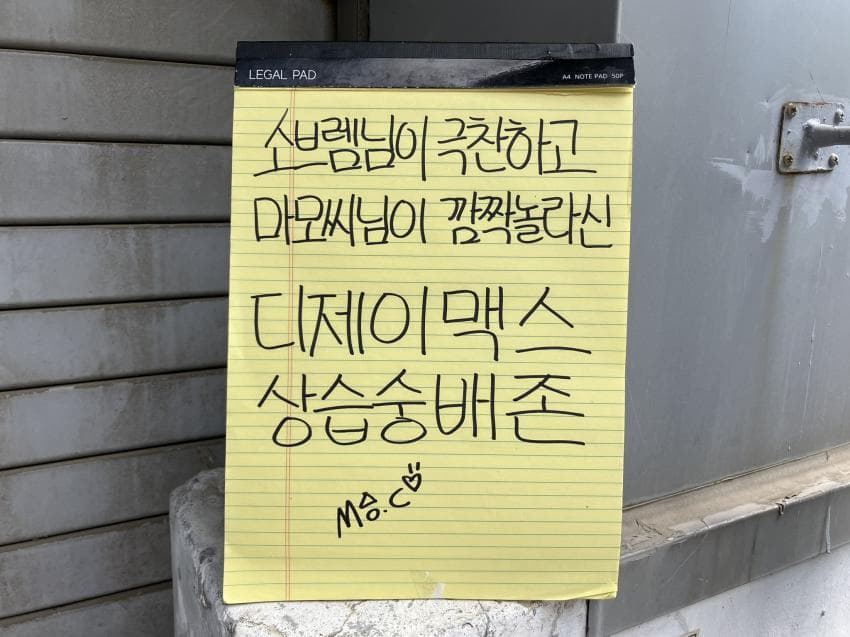 LEGAL PAD
A4 NOTE PAD 50P
소브렘님이 극찬하고
마모씨님이 깜짝놀라신
디제이맥스
상습숭배존